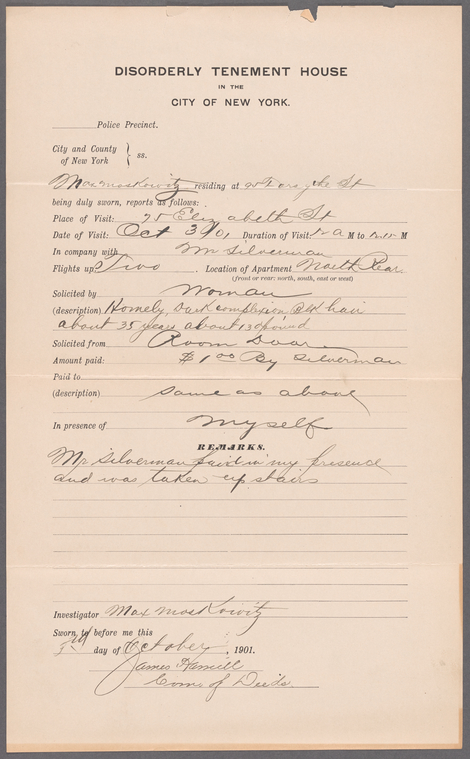 DISORDERLY TENEMENT HOUSE
IN THE
CITY OF NEW YORK.
Police Precinct.
City and County
of New York } ss.
Max Moskowitz residing at Forsythe St
being duly sworn, reports as follows:
Place of Visit: 75 Elizabeth St
Date of Visit: Oct 3/01 Duration of Visit: M to M
In company with Mr Silverman
Flights up Two. Location of Apartment North Rear
(front or rear: north, south, east or west)
Solicited by Woman
(description) Homely Dark complexion Blk hair
about 35 years about 130 pound
Solicited from Room Door
Amount paid: $1.00 By Silverman
Paid to
(description) Same as above
In presence of Myself
REMARKS.
Mr Silverman paid in my presence
and was taken up stairs
Investigator Max Moskowitz
Sworn to before me this
3rd day of October, 1901.
James Hamill
Com of Deeds